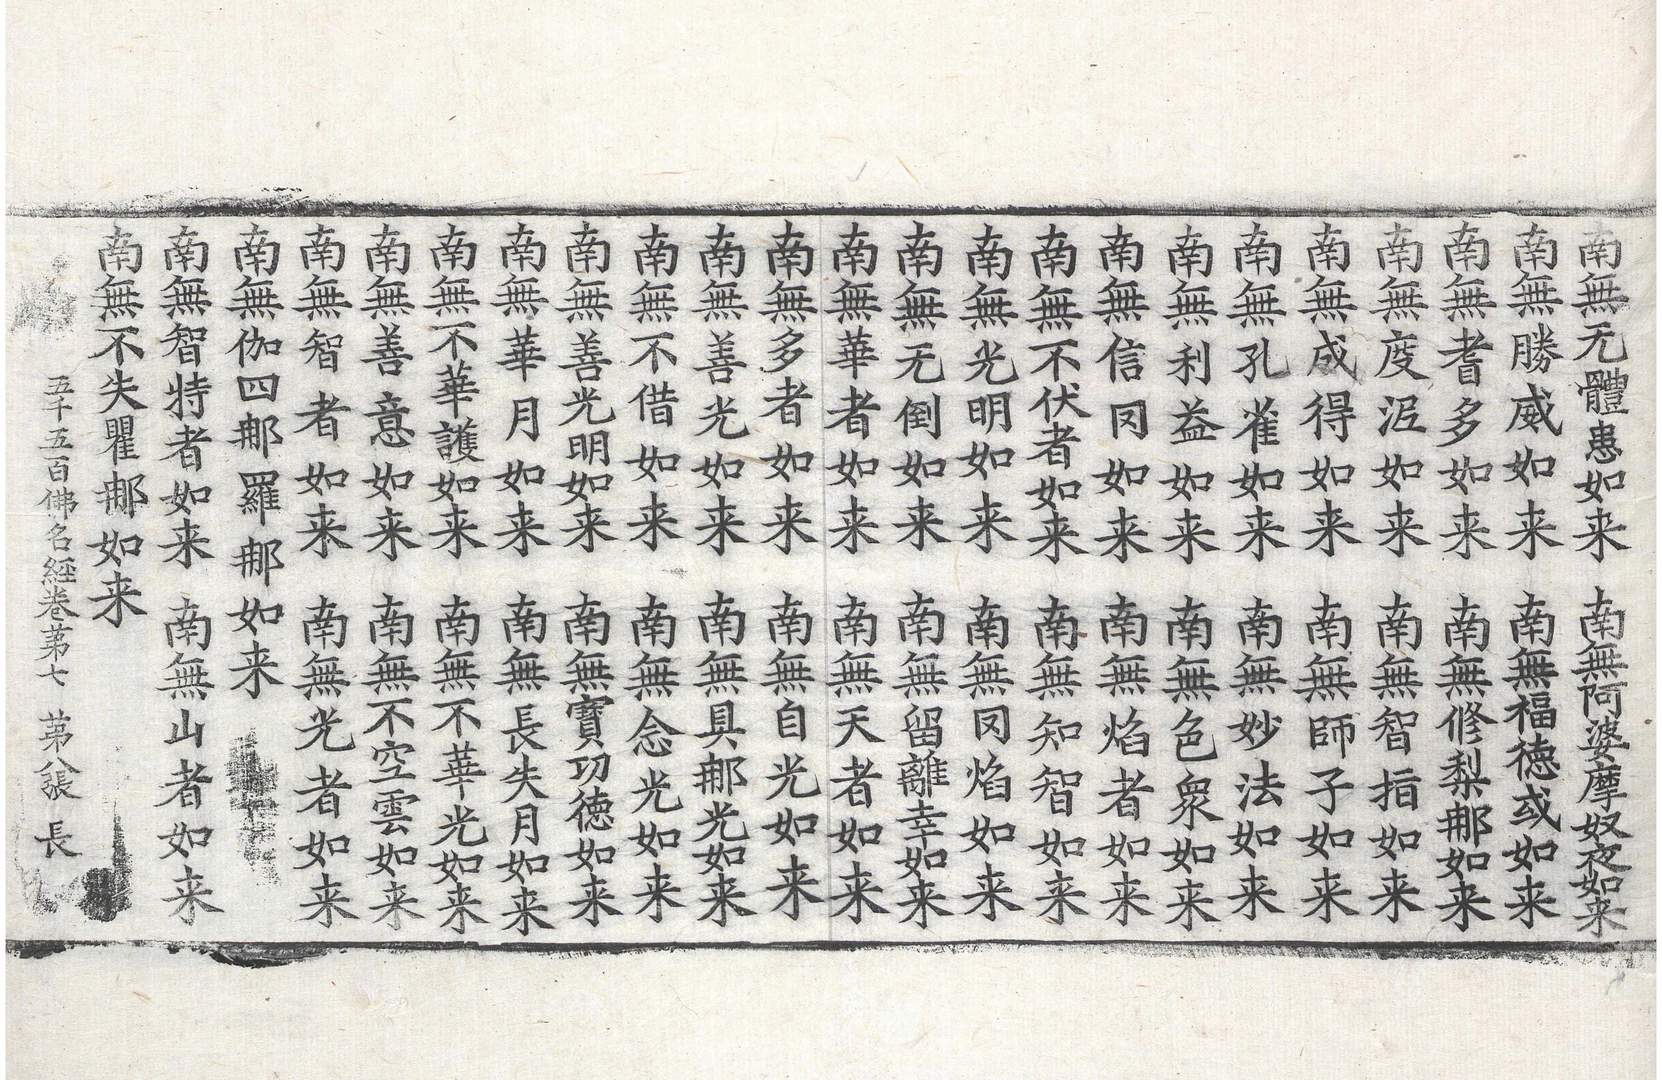 南無无體患如来 南無阿婆摩奴夜如来
南無勝威如来 南無福徳或如来
南無耆多如来 南無修梨那如来
南無度泥如来 南無智指如来
南無成得如来 南無師子如来
南無孔雀如来 南無妙法如来
南無利益如来 南無色衆如来
南無信囙如来 南無焰者如来
南無不伏者如来 南無知智如来
南無光明如来 南無囙焰如来
南無无倒如来 南無留離幸如来
南無華者如来 南無天者如来
南無多者如来 南無自光如来
南無善光如来 南無具那光如来
南無不借如来 南無念光如来
南無善光明如来 南無寶功徳如来
南無華月如来 南無長失月如来
南無不華護如来 南無不華光如来
南無善意如来 南無不空雲如来
南無智者如来 南無光者如来
南無伽四那羅那如来
南無智特者如来 南無山者如来
南無不失瞿那如来
五千五百佛名経卷苐七 苐八張 長